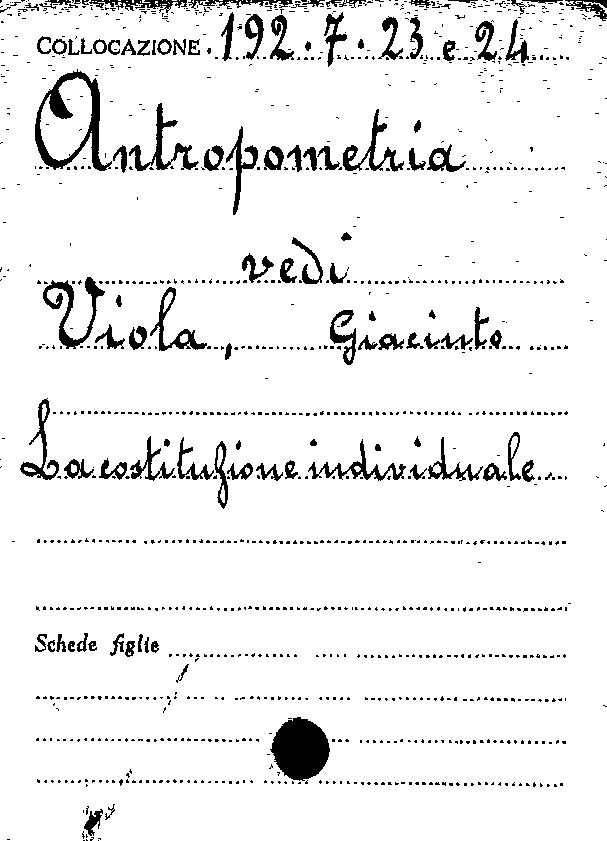 COLLOCAZIONE. 192.7.23 e 24
Antropometria
vedi
Viola, Giacinto
La costituzione individuale
Schede figlie